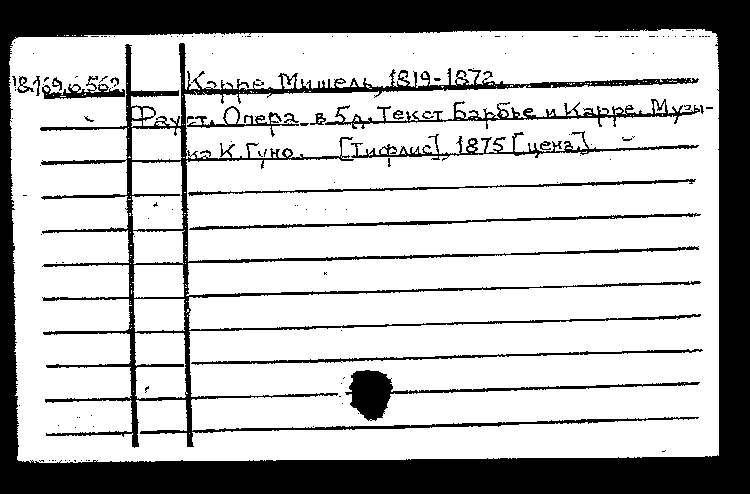 18.169.6.562. Карре, Мишель, 1819-1872.
Фауст. Опера в 5д. Текст Барбье и Карре. Музы-
ка К. Гуно. [Тифлис], 1875 [ценз.].